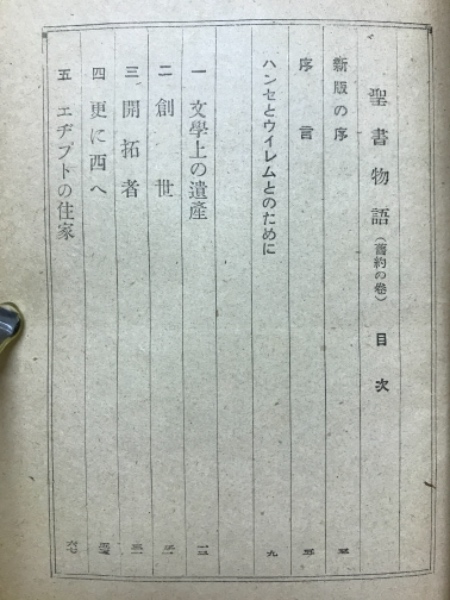 聖書物語（舊約の卷）目次
新版の序
序言
ハンセとウイレムとのために 九
一 文學上の遺產
二 創世
三 開拓者
四 更に西へ
五 エヂプトの住家 六七